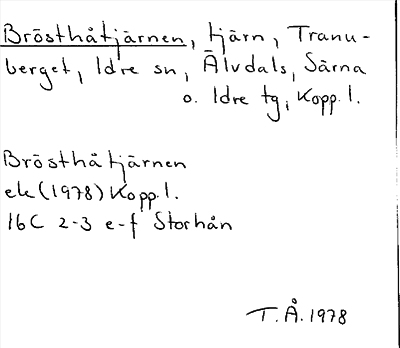 Brösthåtjärnen, tjärn, Tranu-
berget, Idre sn, Älvdals, Särna
o. Idre tg, Kopp. l.
Brösthåtjärnen
ek (1978) Kopp. l.
16C 2-3 e-f Storhån
T. Å. 1978